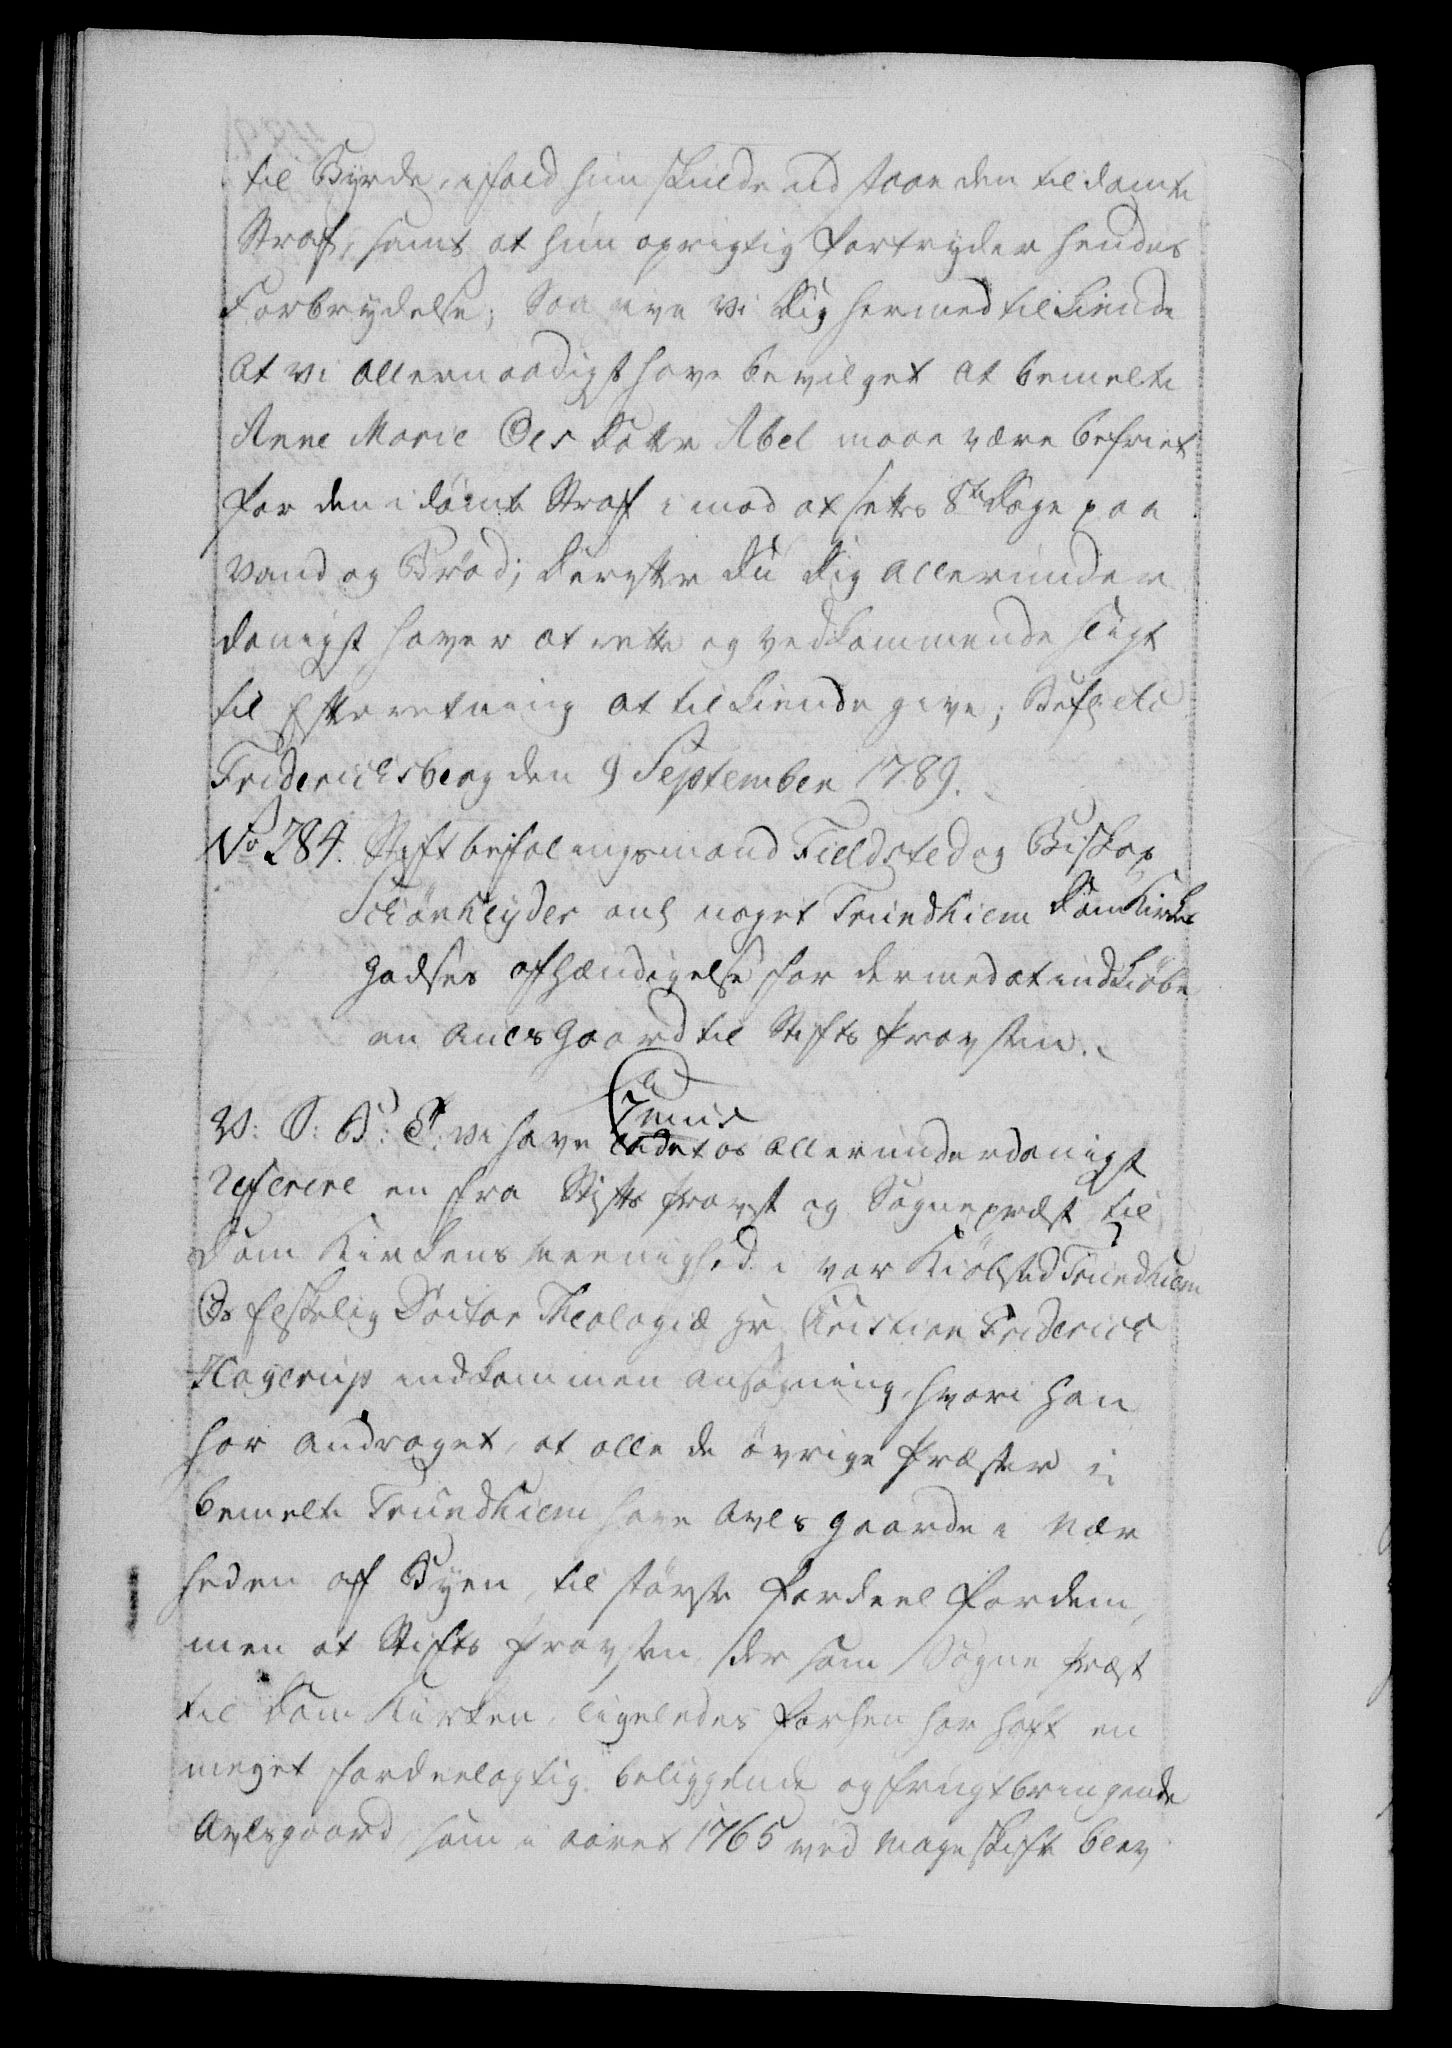 til Byrde, ifald hun skulde ud staae den til dømte
Straf, samt at hun oprigtig fortryder hendes
Forbrydelse; Saa give vi Dig hermed tilkiende
at vi allernaadigst have bevilget at bemelte
Anne Marie Ols Datter Abel maae være befriet
for den i dømte Straf i mod at settes 8te Dage paa
Vand og Brød; Derefter Du Dig allerunder
danigst haver at rette og vedkommende sligt
til Efterretning at tilkiende give; Befh etc
Friderichsberg den 9 September 1789.
No 284. Stiftbefalingsmand Fieldsted og Biskop
Schönheyder anl noget Trundhiem Dom Kirkes
Godses afhændigelse for dermed at indkiøbe
en Auls Gaard til Stifts Provsten.
V: S: B: T: vi have ladet os allerunderdanigst
referere en fra Stifts Provst og Sognepræst til
Dom Kirkens Meenighed i vor Kiøbsted Trundhiem
Os elskelig Doctor Theologiæ Hr Christian Friderich
Hagerup indkommen ansøgning, hvori han
har andraget, at alle de øvrige Præster i
bemelte Trundhiem have Avls gaarde i Nær
heden af Byen, til største Fordeel for dem,
men at Stifts Provsten, der som Sogne Præst
til Dom Kirken, ligeledes forhen har haft en
meget fordeelagtig beliggende og frugtbringende
Avlsgaard, som i aaret 1765 ved Mageskifte blev